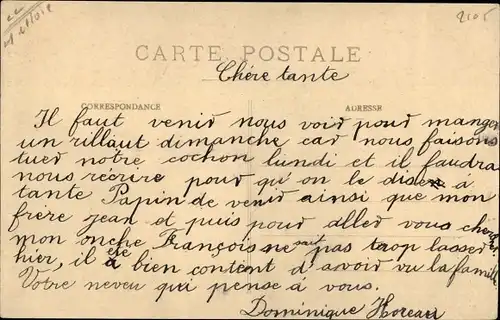 2105
CARTE POSTALE
Chère tante
CORRESPONDANCE
ADRESSE
Il faut venid nous void poud manger
un rillaut dimanche cad nous faisons
tued notre cochon lundi et il faudra
nous récrire poud qu'on le dise à
tante Papin de venid ainsi que mon
frère jean et puis poud alled vous cherc
mon onche François ne sait pas trop lassed
hier, il été à bien content d'avoid vu la famille
Votre neveu qui pense à vous.
Dominique Horeau